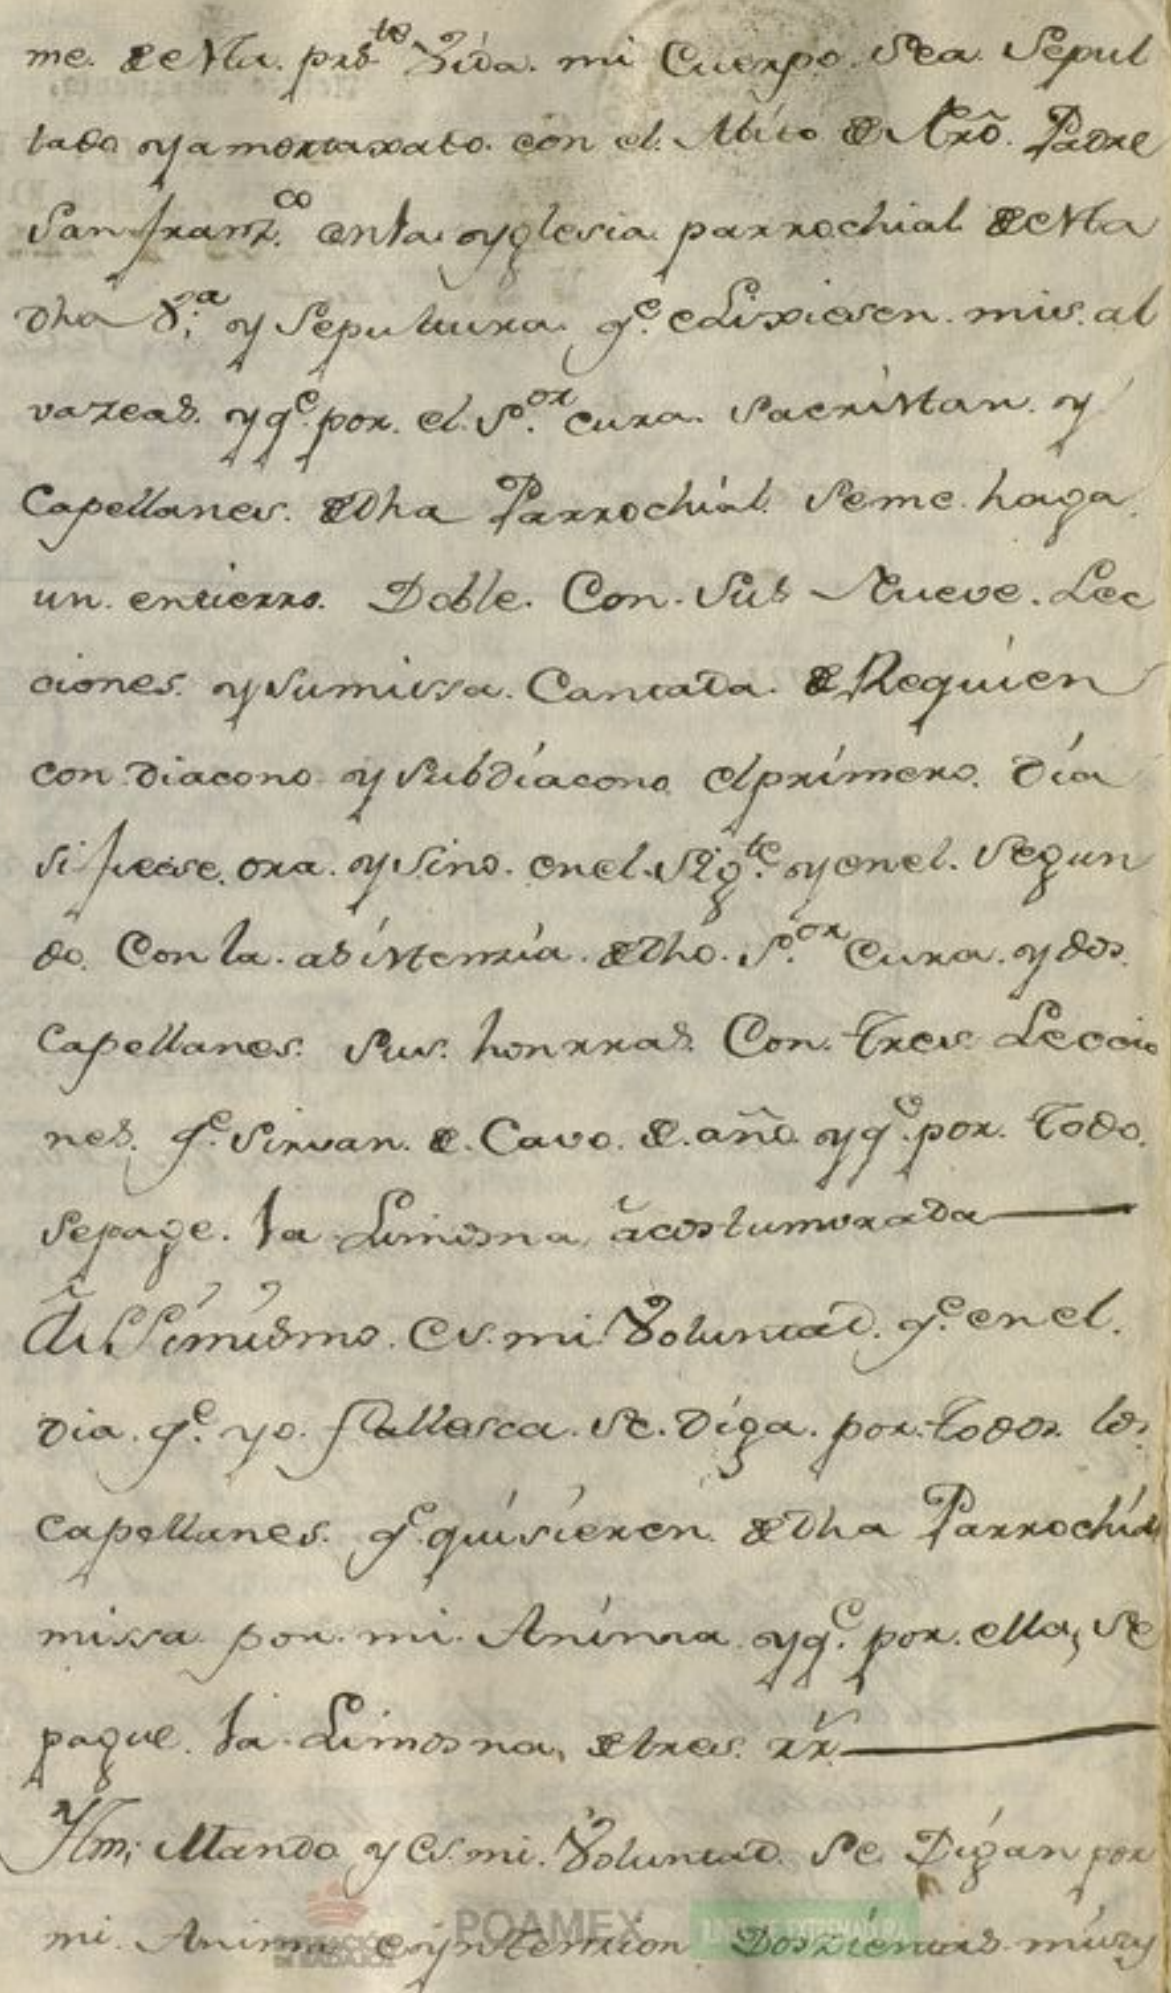 me. de esta. pres.te Vida. mi Cuerpo. Sea. Sepul
tado y amortaxado. con el. Abito de Nrõ. Padre
San franz.co en la yglesia parrochial de esta
dha V.ª y Sepultura. q.e elixiesen. mis. al
vazeas. y q.e por. el. S.or cura. Sacristan. y
Capellanes. de dha Parrochial. Se me. haga.
un. entierro. Doble. Con. Sus Nueve. Lec
ciones. y su missa. Cantada. de Requien
con diacono y subdiacono el primero. dia
si fuese. ora. y Sino. en el. Sig.te y en el. Segun
do. Con la. asistenzia. de dho. S.or Cura. y dos.
Capellanes. Sus. honrras. Con. tres Leccio
nes. q.e Sirvan. de. Cavo. de. año. y q.e por. todo.
se page. la Limosna acostumbrada
Assimismo. es. mi Voluntad. q.e en el.
dia. q.e yo. fallesca. se. diga. por. todos los
capellanes. q.e quisieren. de dha Parrochial
missa por. mi. Anima y q.e por. ella, se
pague. la. Limosna, de tres. rr.s
Ytm; Mando y es. mi. Voluntad. Se Digan por
mi. Anima e yntenzion Doszientas missas
POAMEX
JUNTA DE EXTREMADURA